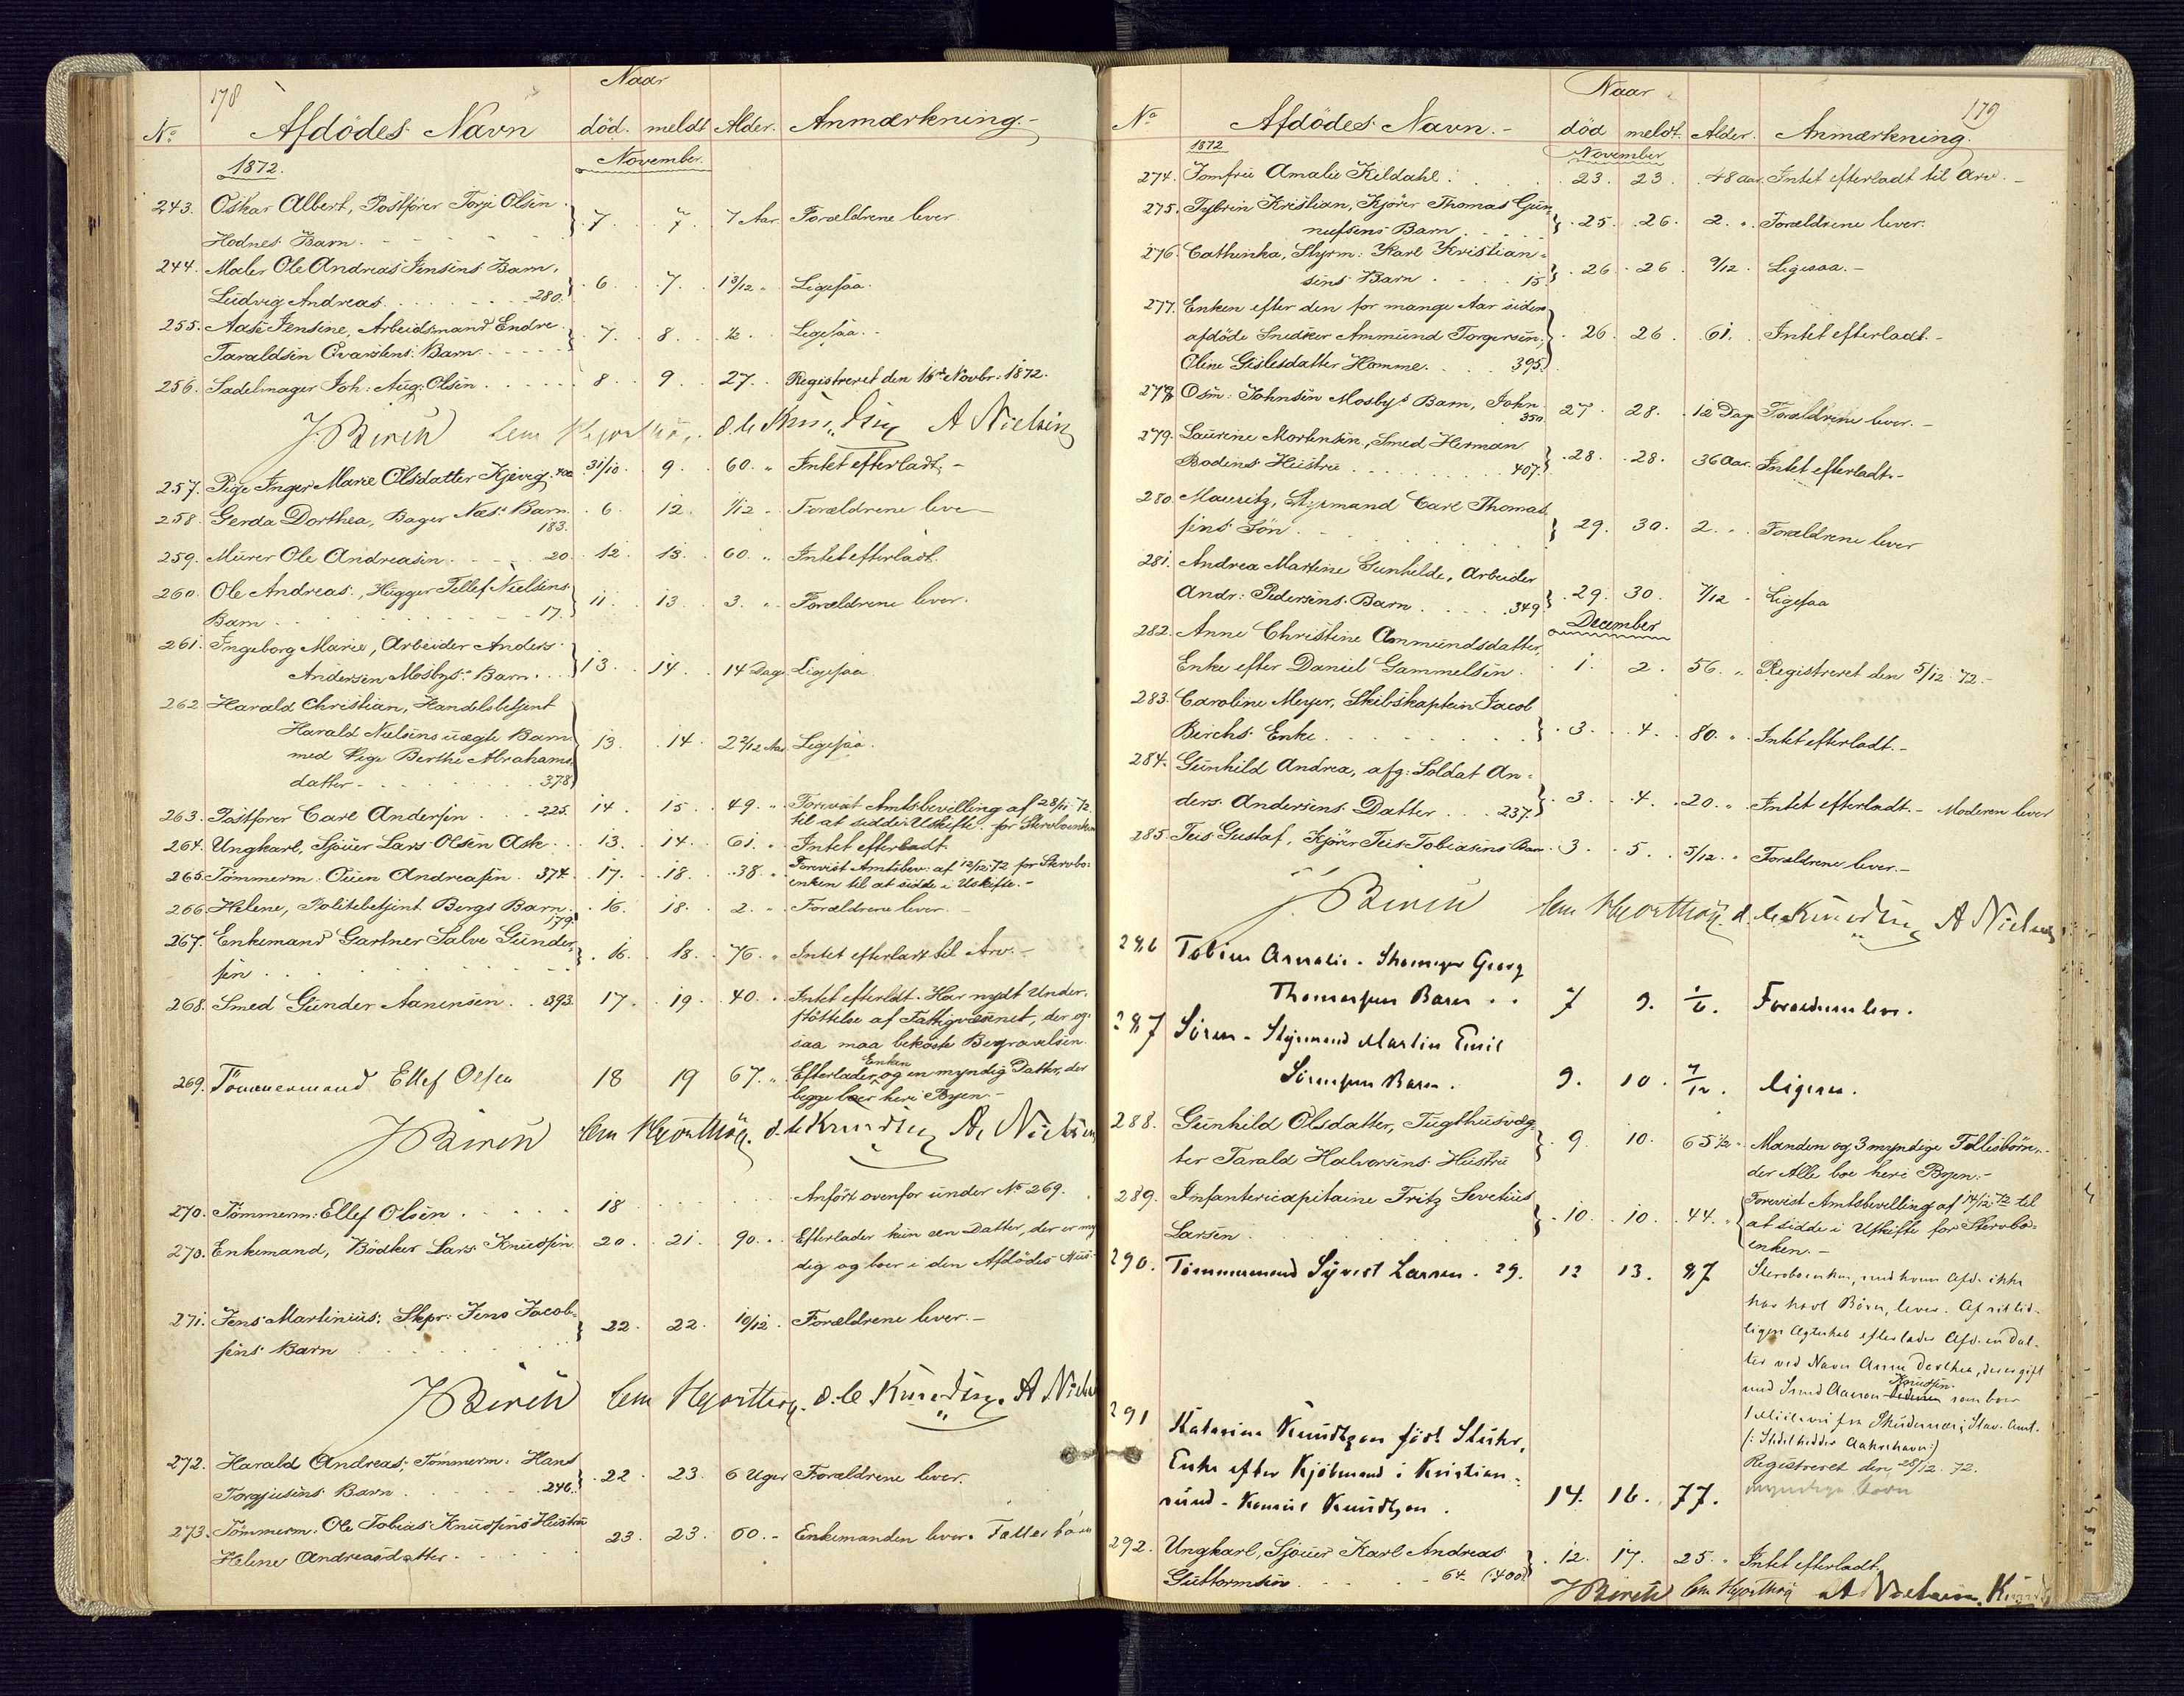 178
Naar
No Afdödes Navn död. meldt Alder. Anmærkning.-
1872. November.
243. Oskar Albert, Postförer Torje Olsen
Hodnes Barn. } 7. 7. 7 Aar Forældrene lever
244. Maler Ole Andreas Jensens Barn,
Ludvig Andreas 280. } 6. 7. 1 3/12 " Ligesaa.
255. Aase Jensine, Arbeidsmand Endre
Taraldsen Qvarstens Barn } 7. 8. ½ . Ligesaa.
256. Sadelmager Joh: Aug: Olsen 8. 9. 27. Registreret den 16de Novbr. 1872.
J Birch Cem Hjorthöy. A Nielsen
257. Pige Inger Marie Olsdatter Kjevig. 400 31/10. 9. 60. " Intet efterladt.-
258. Gerda Dorthea, Bager Næs' Barn. 6. 12. 1/12 " Forældrene lever
183.
259. Murer Ole Andreasen 20. 12. 13. 60. " Intet efterladt.
260. Ole Andreas, Hugger Tellef Nielsens
Barn 17. } 11. 13. 3. " Forældrene lever.
261. Ingeborg Marie, Arbeider Anders
Andersen Mosbys' Barn. } 13. 14. 14 Dage Ligesaa.
262. Harald Christian, Handelsbetjent
Harald Nielsens uægte Barn
med Pige Berthe Abrahams-
datter 378. } 13. 14. 2 2/12 Aar Ligesaa.
263. Postförer Carl Andersen 225. 14. 15. 49. " Forevist Amtsbevilling af 28/11 72
til at sidde i Uskifte for Stervboenken
264. Ungkarl, Sjöuer Lars Olsen Ask. 13. 14. 61. " Intet efterladt.
265. Tömmerm. Ouen Andreasen. 374. 17. 18. 38. " Forevist Amtsbev: af 12/12 72 for Stervbo-
enken til at sidde i Uskifte.-
266. Helene, Politibetjent Bergs Barn. 16. 18. 2. " Forældrene lever.-
179.
267. Enkemand Gartner Salve Gunder-
sen } 16. 18. 76. " Intet efterladt til Arv.-
268. Smed Gunder Aanensen. 393. 17. 19. 40. " Intet efterldt. Har nydt Under-
støttelse af Fattigvæsenet, der og-
saa maa bekoste Begravelsen.
269. Tömmermand Ellef Olsen 18 19 67. " Efterlader Enken og en myndig Datter, der
begge boer heri Byen.-
J Birch Cem Hjorthöy. A. Nielsen
270. Tömmerm: Ellef Olsen 18 Anfört ovenfor under No 269.
270. Enkemand, Bödker Lars Knudsen 20. 21. 90. " Efterlader kun en Datter, der er myn-
dig og boer i den Afdödes Hus-
271. Jens Martinius, Skpr: Jens Jacob-
sens Barn } 22. 22. 10/12. Forældrene lever.-
J Birch Cem Hjorthöy. A Nielsen
272. Harald Andreas, Tömmerm: Hans
Torgjusens Barn 246. } 22. 23. 6 Uger Forældrene lever.
273. Tömmerm: Ole Tobias Knudsens Hustru
Helene Andreasdatter. 23. 23. 60.- Enkemanden lever. Fællesbörn
179
Naar
No Afdödes Navn.- död meldt. Alder. Anmærkning.
1872 November
274. Jomfru Amalie Kildahl. 23. 23. 48 aar. Intet efterladt til Arv.-
275. Tybrin Kristian, Kjörer Thomas Gun-
nufsens Barn } 25. 26. 2. " Forældrene lever.
276. Cathinka, Styrm: Karl Kristian-
sens Barn 15 } 26. 26. 9/12. Ligesaa.-
277. Enken efter den for mange Aar siden
afdöde Snedker Ammund Torgersen,
Oline Gislesdatter Homme. 395. } 26. 26. 61. Intet efterladt.-
278. Osm: Johnsen Mosby's Barn, John 27. 28. 12 Dage Forældrene lever.-
350.
279. Laurine Mortensen, Smed Herman
Bodins Hustru 407. } 28. 28. 36 Aar. Intet efterladt.-
280. Mauritz, Styrmand Carl Thomas-
sens Sön } 29. 30. 2. " Forældrene lever
281. Andrea Martine Gunhilde, Arbeider
Andr: Pedersens Barn 349. } 29. 30. 7/12 " Ligesaa
December
282. Anne Christine Ammundsdatter,
Enke efter Daniel Gammelsen. 1. 2. 56. " Registreret den 5/12 72.-
283. Caroline Meyer, Skibskaptein Jacob
Birchs Enke } 3. 4. 80. " Intet efterladt.-
284. Gunhild Andrea, afg: Soldat An-
ders Andersens Datter 237. } 3. 4. 20. " Intet efterladt.- Moderen lever
285. Teis Gustaf, Kjörer Teis Tobiasens Barn. 3. 5. 5/12. " Forældrene lever.-
J. Birch Cem Hjorthöy. A Nielsen
286 Tobine Amalie. Georg
Thomassen Barn. 7 9. 1/6. Forældrene lever.
287 Sören - Styrmand Martin Emil
Sörensen Barn. 9. 10. 7/12. ligesaa.
288. Gunhild Olsdatter, Tugthusvag-
ter Tarald Halvorsens Hustru } 9. 10. 65½ " Manden og 3 myndige Fællesbörn,-
der Alle boe heri Byen.-
289. Infantericapitaine Fritz Severius
Larsen } 10. 10. 44. " Forevist Amtsbevilling af 14/12 72 til
at sidde i Uskifte for Stervbo-
enken.-
290. Tömmermand Syvert Larsen. 29. 12 13. 87 Stervboenken, med hvem Afd. ikke
har havt Börn, lever. Af et tid-
ligere Ægteskab efterlader Afd. en Dat-
ter ved Navn Anne Dorthea, der er gift
med Smed Aanon Knudsen som boer
1 Miil fra Skudenæs i Stav. Amt.
(: Stedet heder Aakrehavn:)
Registreret den 28/12. 72.
291 Katarina Knudtzon födt Stuhr,
Enke efter Kjöbmand i Kristian-
sund - Konsul Knudtzon. 14. 16. 77. myndige börn
292. Ungkarl, Sjöuer Karl Andreas
Guttormsen 64. (400) } 12. 17. 25. " Intet efterladt.
J Birch Cem Hjorthöy A Nielsen.